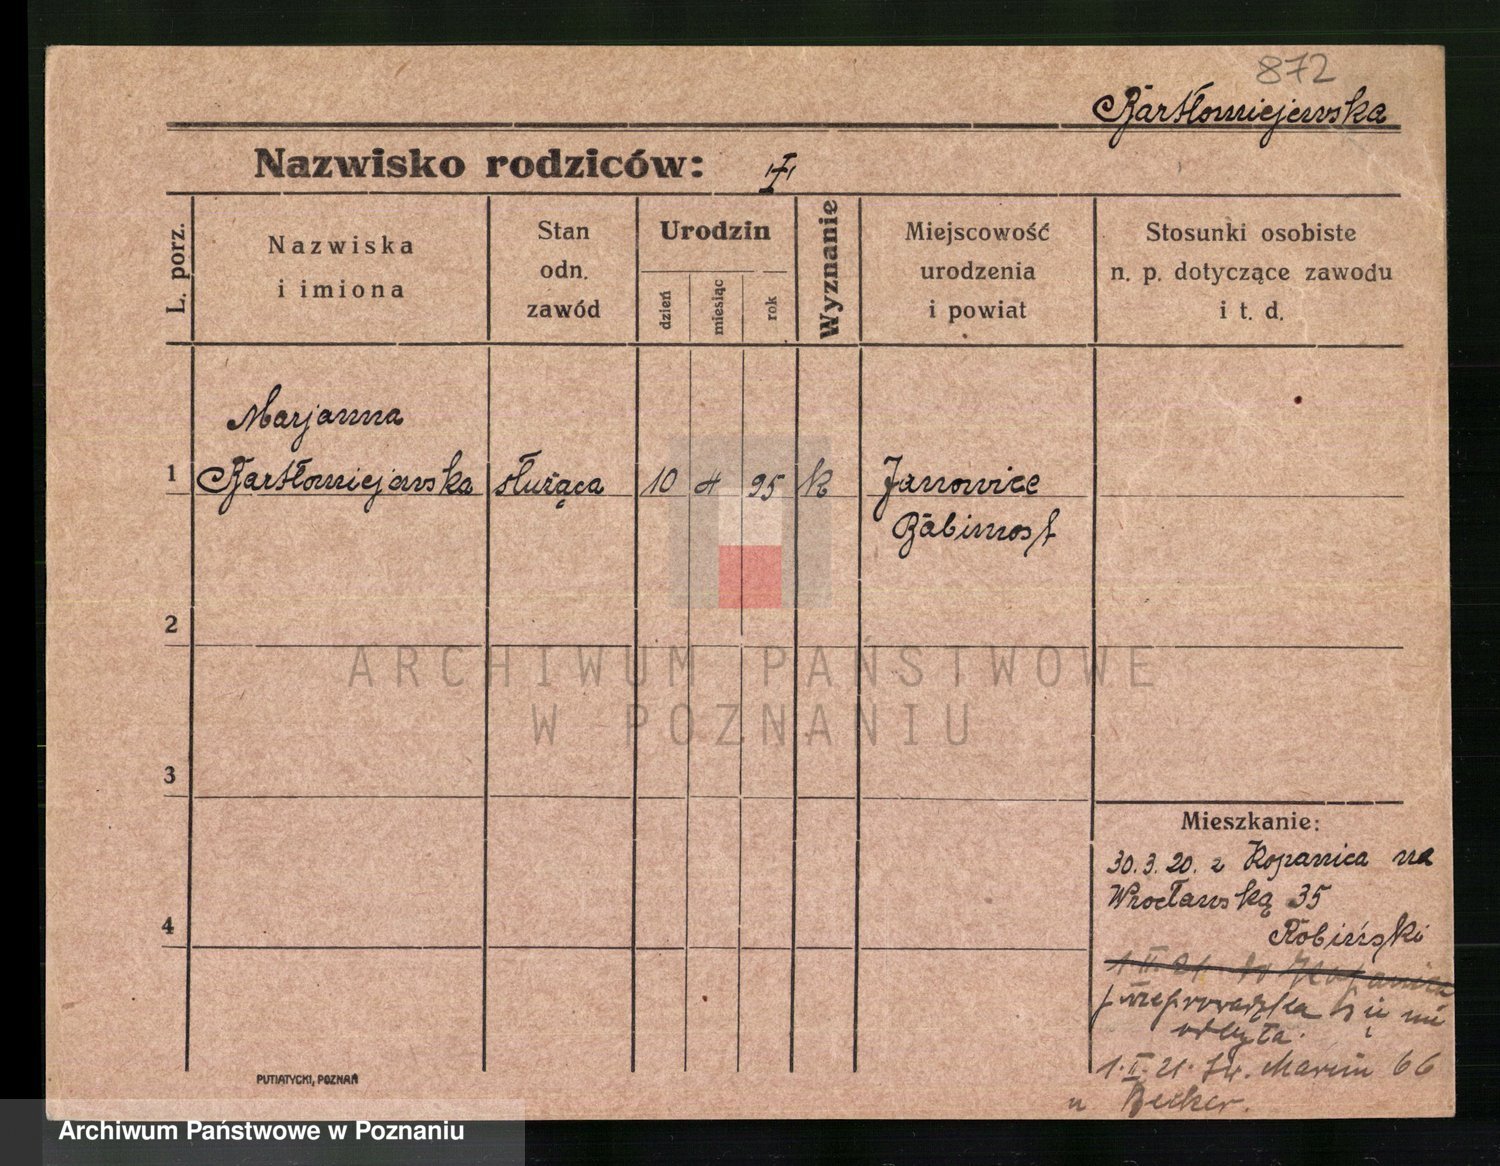 872
Bartłomiejewska
Nazwisko rodziców:
L. porz.
Nazwiska
i imiona
Stan
odn.
zawód
Urodzin
dzień
miesiąc
rok
Wyznanie
Miejscowość
urodzenia
i powiat
Stosunki osobiste
n. p. dotyczące zawodu
i t. d.
Marjanna
1 Bartłomiejewska służąca 10 4 95 k Janowice
Babimost
2
ARCHIWUM PAŃSTWOWE
W POZNANIU
3
Mieszkanie:
30.3.20. z Kopanica na
Wrocławską 35
Robiński
4
1 II 21 do Kopanica
przeprowadzka się nie
odbyła.
1.II.21. Św. Marcin 66
u Becker.
PUTIATYCKI, POZNAŃ
Archiwum Państwowe w Poznaniu